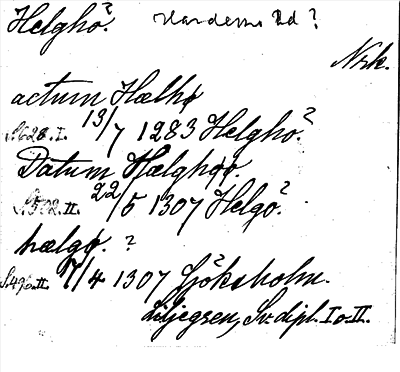 Helghö? Vardems hd?
Nrk.
actum Hælhø
S.628.I. 13/7 1283 Helghö?
Datum Hælghøø.
S.592.II. 22/5 1307 Helgö?
hælgø. ?
S.496.II. 17/4 1307 Sjöksholm.
Liljegren, Sv. dipl. I o. II.